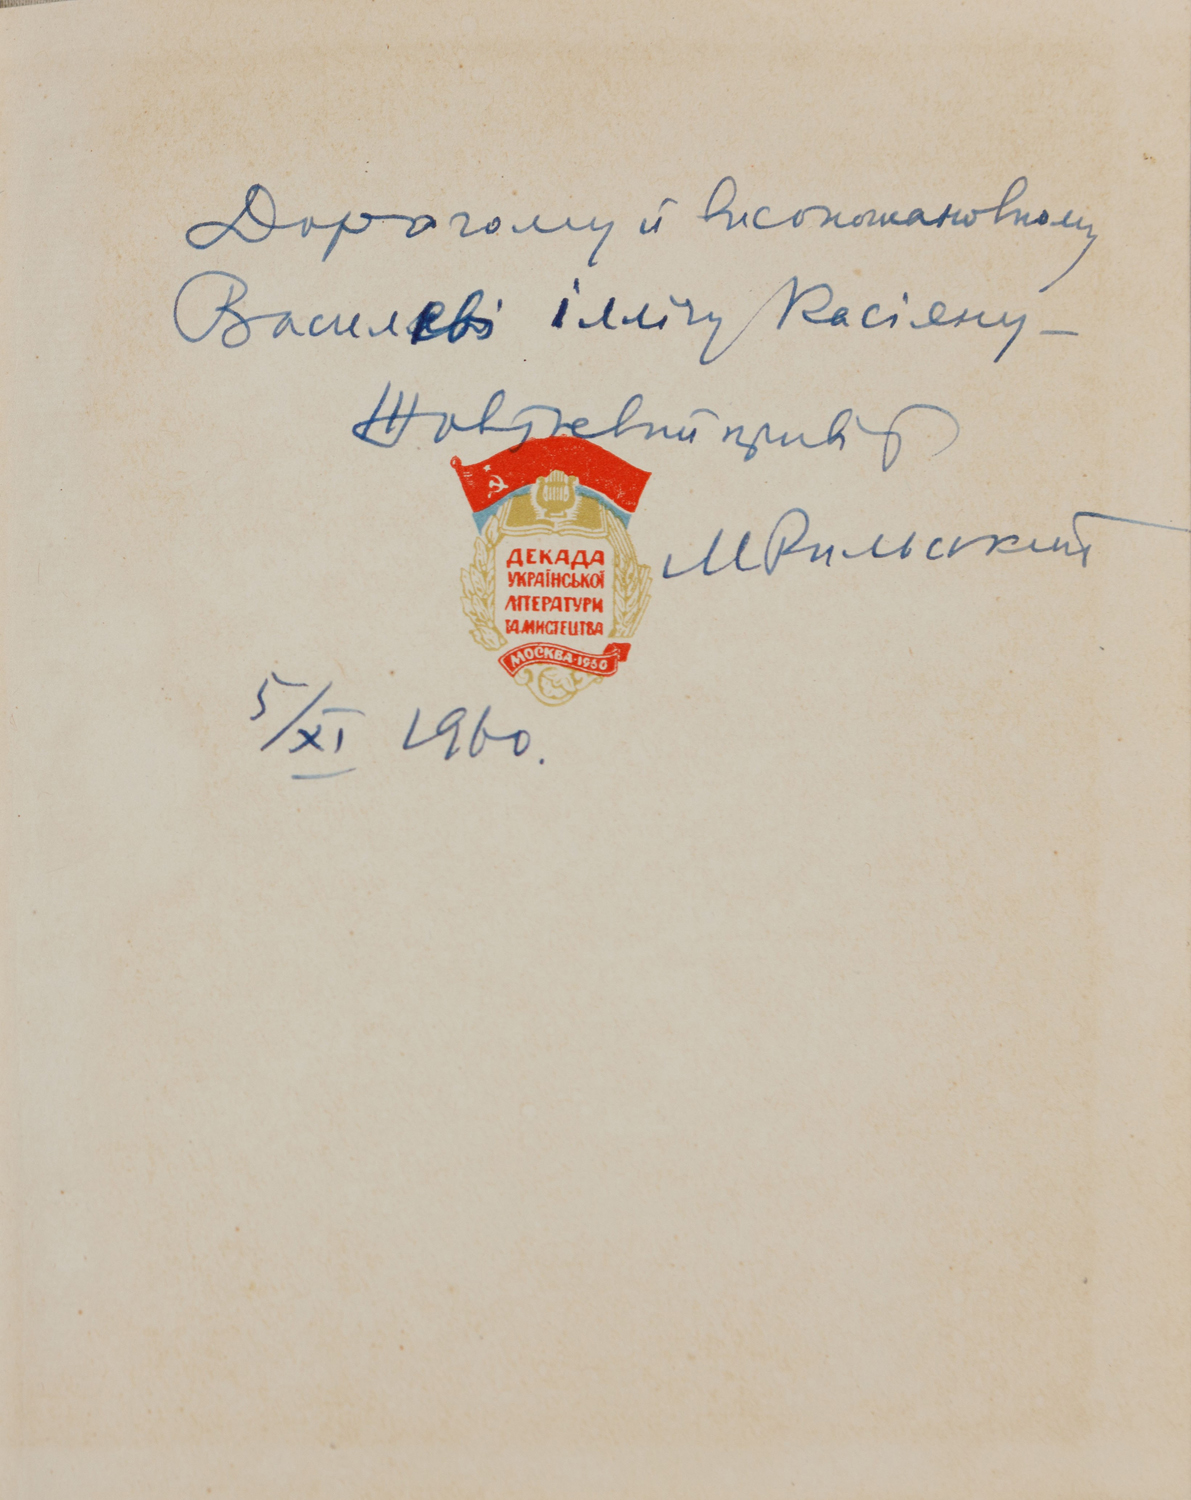 Дорогому й високошановному
Василеві Іллічу Касіяну —
Жовтневий привіт
МРильський
ДЕКАДА
УКРАЇНСЬКОЇ
ЛІТЕРАТУРИ
ТА МИСТЕЦТВА
МОСКВА·1960
5/XI 1960.